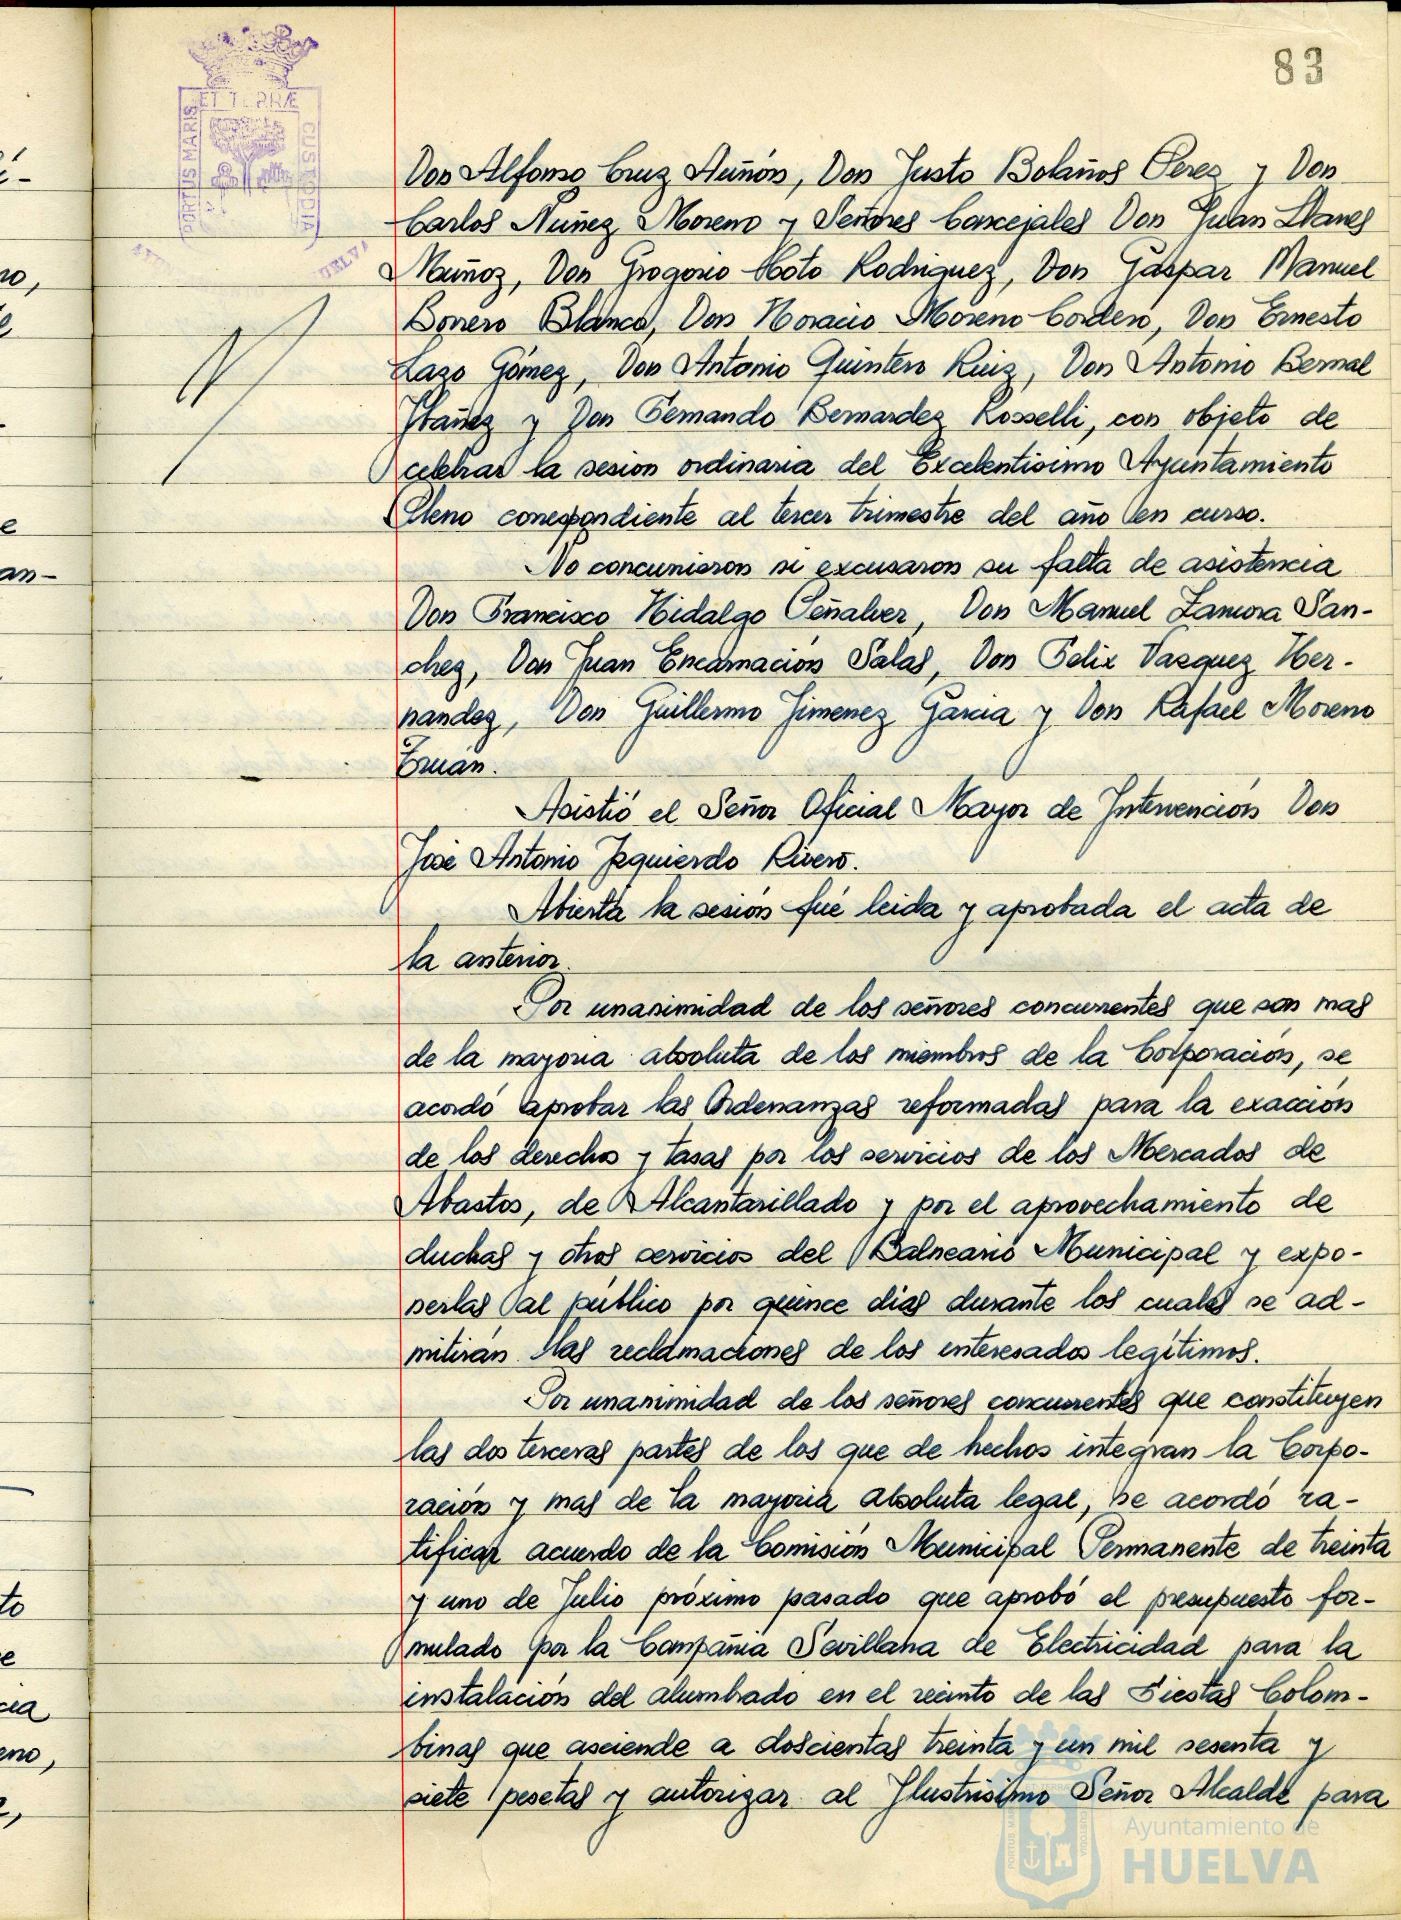 83
ET TERRÆ
PORTUS MARIS
CUSTODIA
Don Alfonso Cruz Auñón, Don Justo Bolaños Perez y Don
Carlos Nuñez Moreno y Señores Concejales Don Juan Llanes
Muñoz, Don Grogorio Soto Rodriguez, Don Gaspar Manuel
Borrero Blanco, Don Horacio Moreno Cordero, Don Ernesto
Lazo Gómez, Don Antonio Quintero Ruiz, Don Antonio Bernal
Ibañez y Don Fernando Bernardez Rosselli, con objeto de
celebrar la sesion ordinaria del Excelentisimo Ayuntamiento
Pleno correspondiente al tercer trimestre del año en curso.
No concurrieron ni excusaron su falta de asistencia
Don Francisco Hidalgo Peñalver, Don Manuel Zamora San-
chez, Don Juan Encarnación Salas, Don Felix Vazquez Her-
nandez, Don Guillermo Jimenez Garcia y Don Rafael Moreno
Truán.
Asistió el Señor Oficial Mayor de Intervención Don
José Antonio Izquierdo Rivero.
Abierta la sesión fué leida y aprobada el acta de
la anterior.
Por unanimidad de los señores concurrentes que son mas
de la mayoria absoluta de los miembros de la Corporación, se
acordó aprobar las Ordenanzas reformadas para la exacción
de los derechos y tasas por los servicios de los Mercados de
Abastos, de Alcantarillado y por el aprovechamiento de
duchas y otros servicios del Balneario Municipal y expo-
nerlas al público por quince dias durante los cuales se ad-
mitirán las reclamaciones de los interesados legítimos.
Por unanimidad de los señores concurrentes que constituyen
las dos terceras partes de los que de hechos integran la Corpo-
ración y mas de la mayoria absoluta legal, se acordó ra-
tificar acuerdo de la Comisión Municipal Permanente de treinta
y uno de Julio próximo pasado que aprobó el presupuesto for-
mulado por la Compañia Sevillana de Electricidad para la
instalación del alumbrado en el recinto de las Fiestas Colom-
binas que asciende a doscientas treinta y un mil sesenta y
siete pesetas y autorizar al Ilustrisimo Señor Alcalde para
Ayuntamiento de
HUELVA